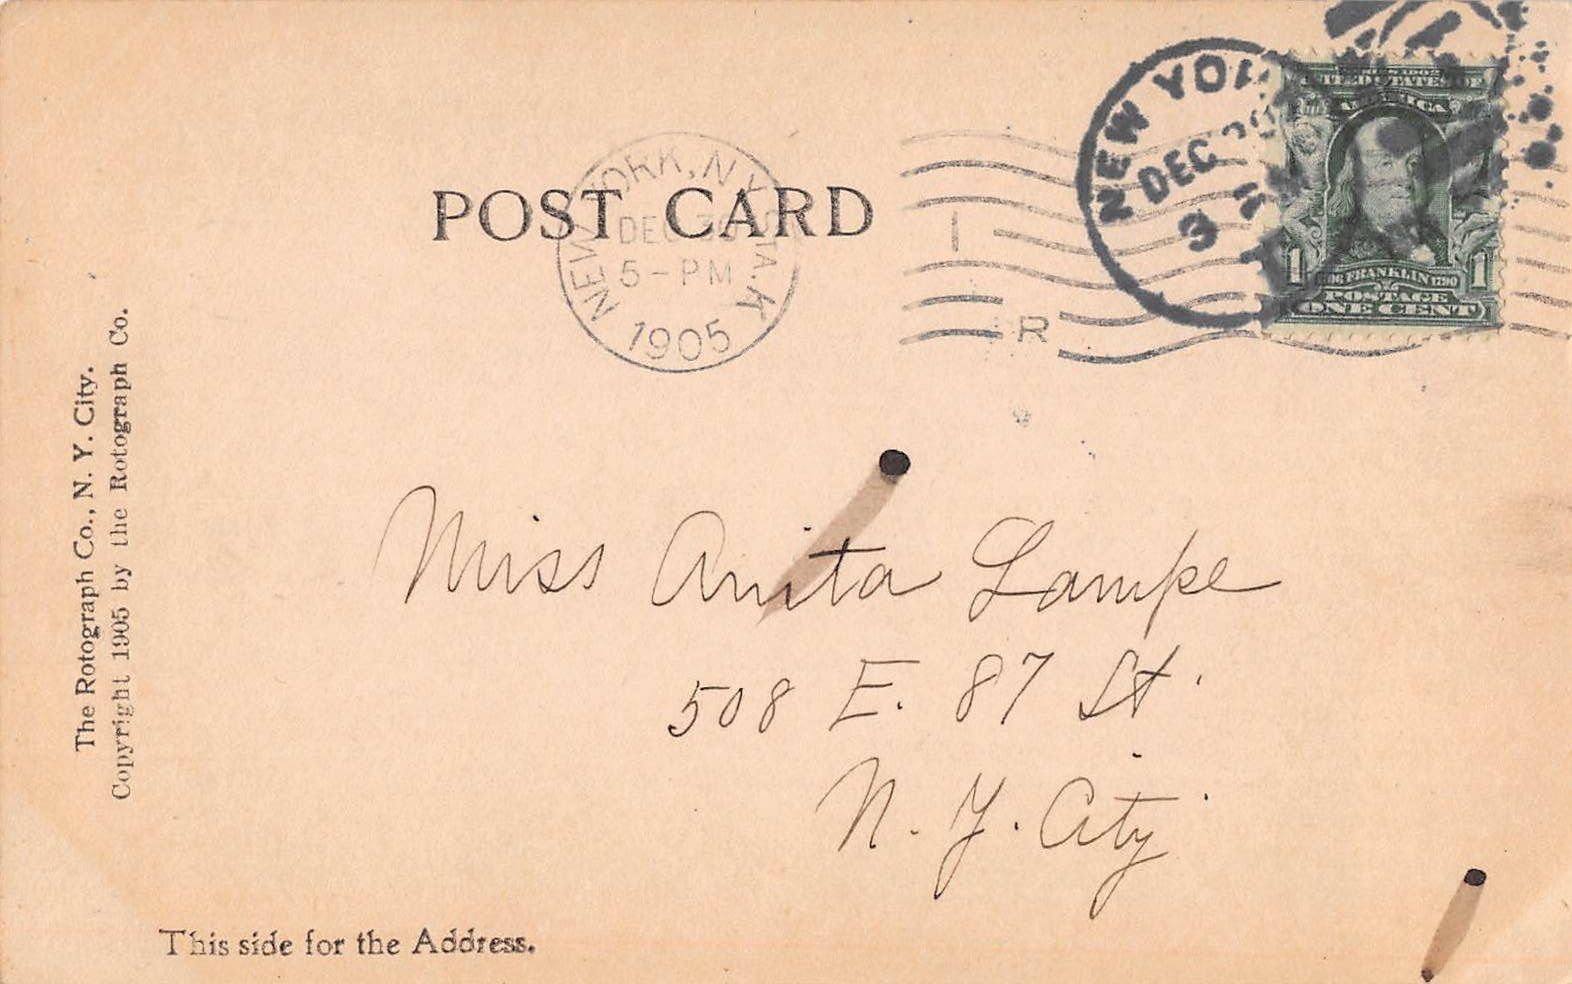 POST CARD
NEW YORK, N.Y. STA. K
DEC 30
5-PM
1905
R
NEW YO
DEC 30
3
SERIES 1902
UNITED STATES OF
AMERICA
1 FRANKLIN 1790 1
POSTAGE
ONE CENT
The Rotograph Co., N. Y. City.
Copyright 1905 by the Rotograph Co.
Miss Anita Lampe
508 E. 87 St.
N. Y. City
This side for the Address.